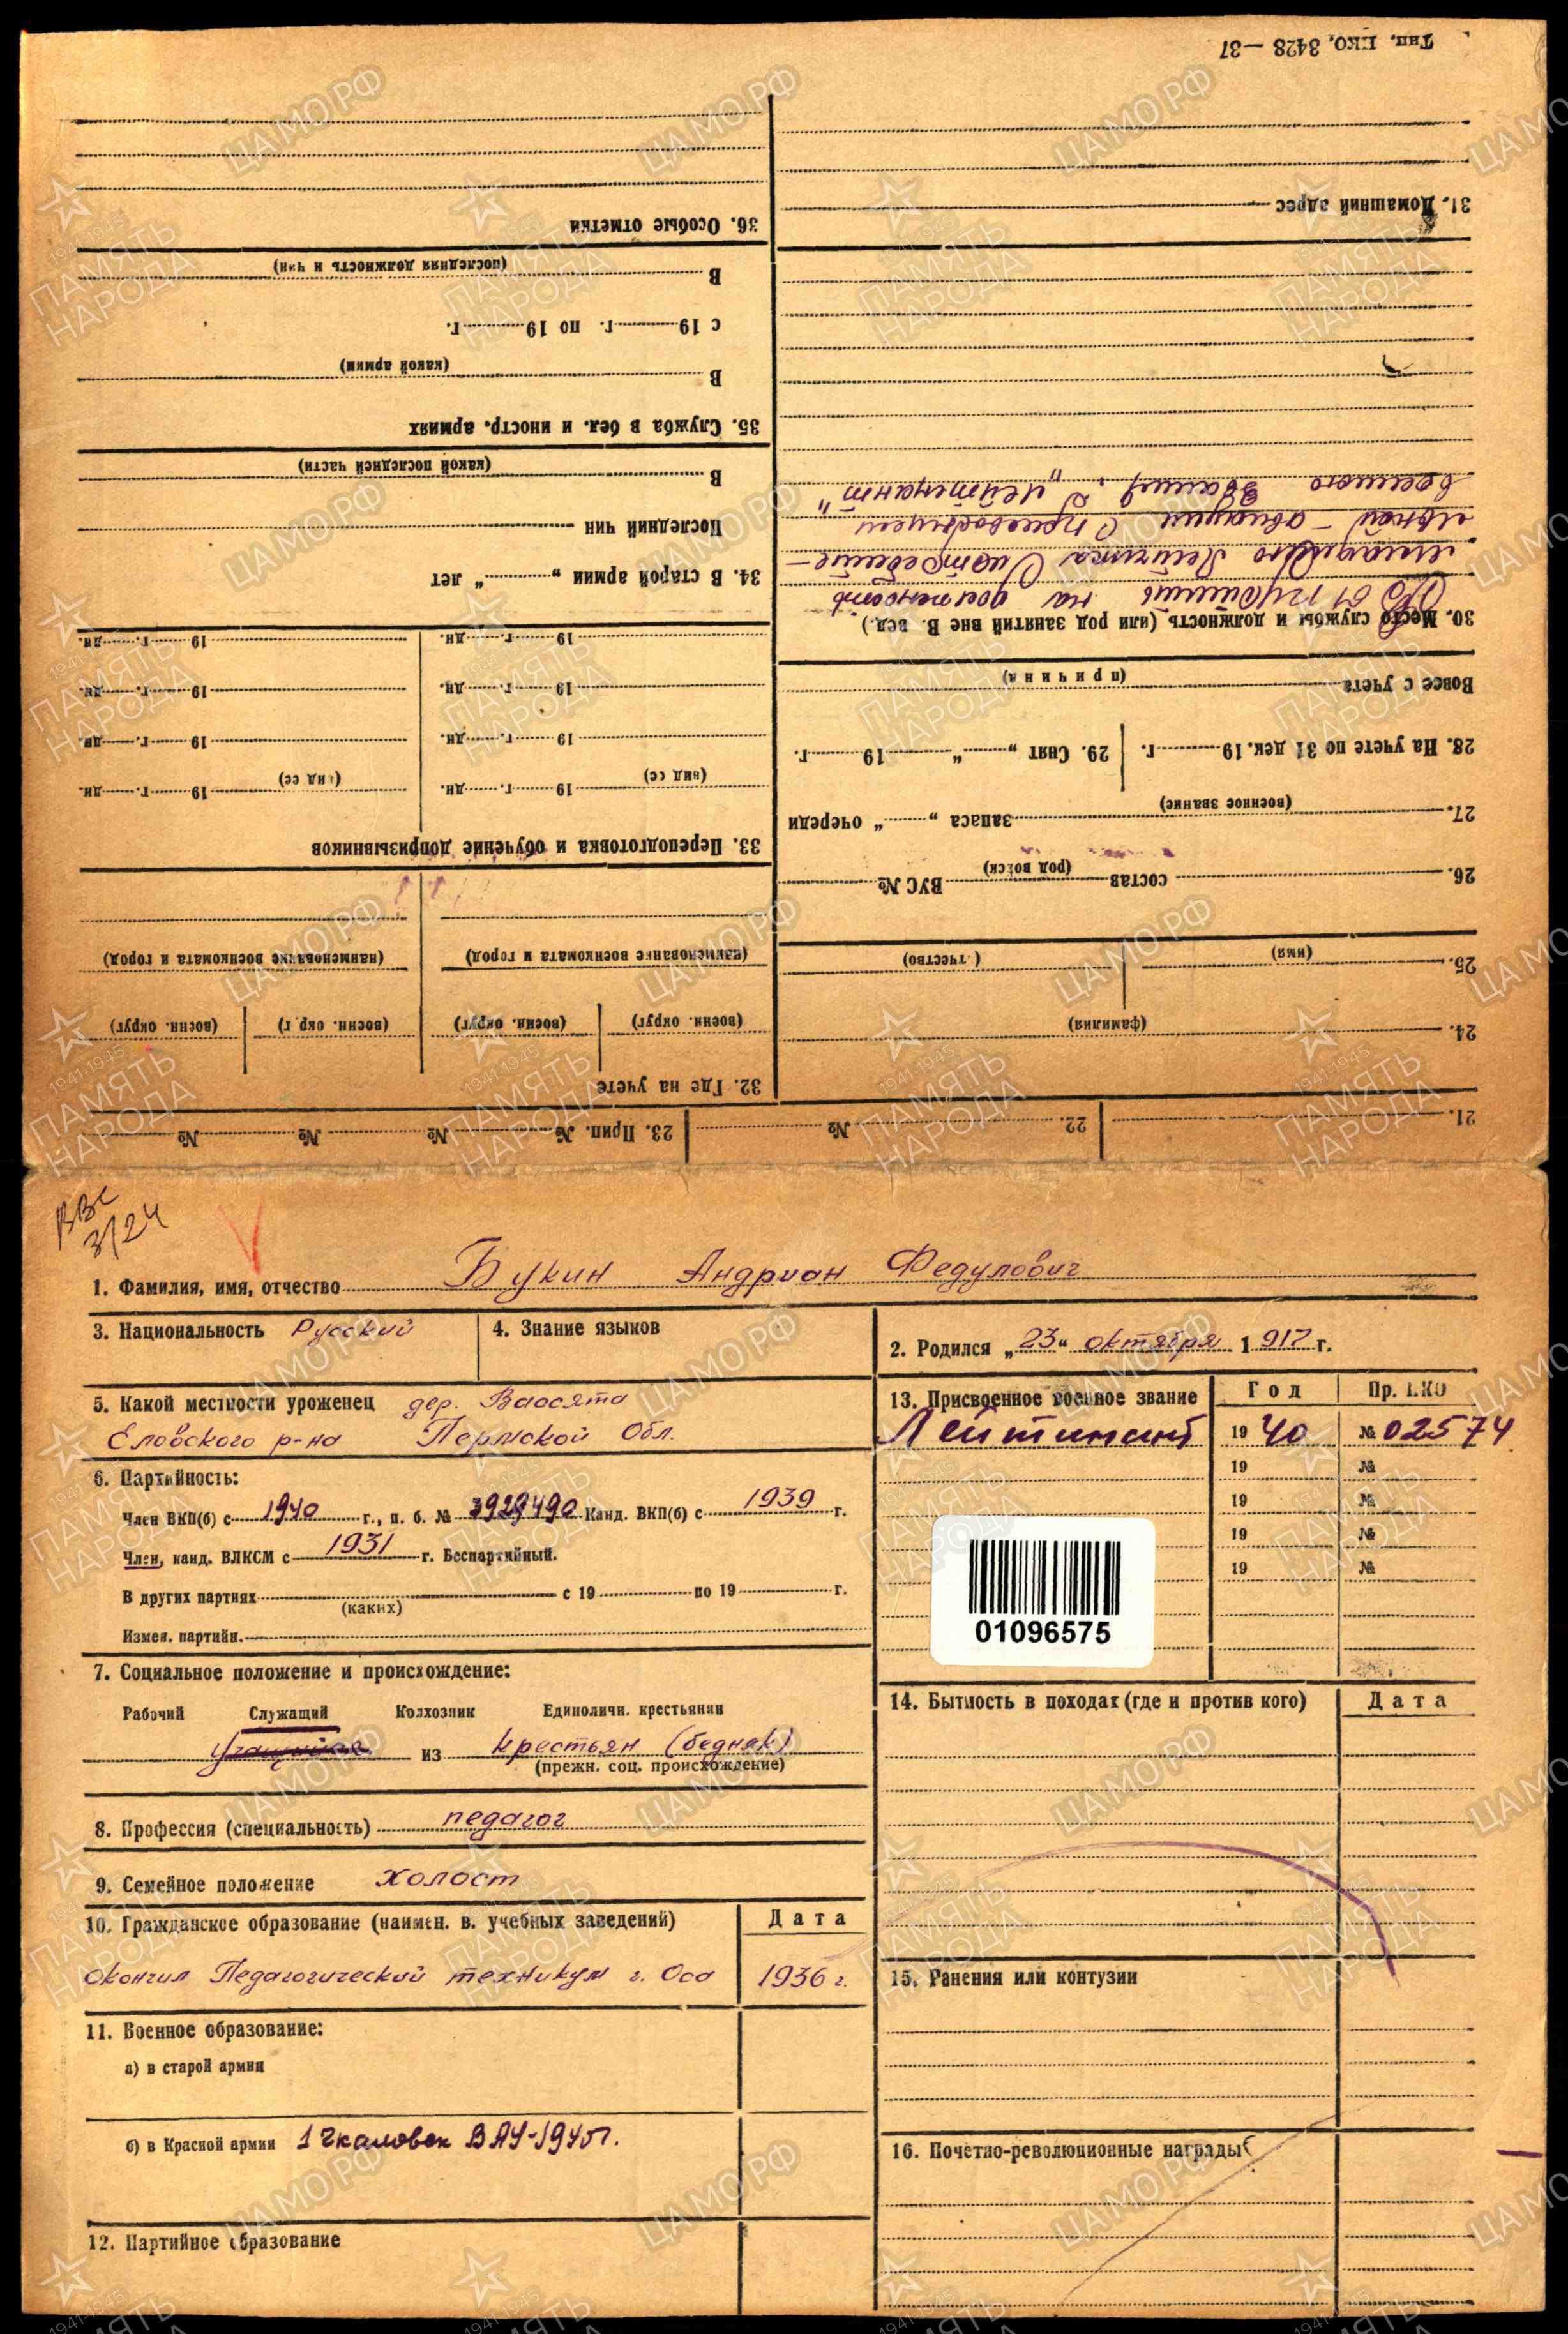 Тип. НКО. 3428 — 37
21.
22. №
23. Прип. № № № №
24. (фамилия)
25. (имя) (отчество)
26. состав (род войск) ВУС №
27. (военное звание) запаса „ “ очереди
28. На учете по 31 дек. 19 г.
29. Снят „ “ 19 г.
Вовсе с учета (причина)
30. Место службы и должность (или род занятий вне В. вед.)
на должность
младшего Летчика Истребите-
льной - авиации С присвоением
военного звания, „Лейтенант“
31. Домашний адрес
32. Где на учете
(воен. округ) (воен. округ) (воен. округ) (воен. округ)
(наименование военкомата и город) (наименование военкомата и город)
33. Переподготовка и обучение допризывников
19 г. дн. 19 г. дн.
(вид сс) (вид сс)
19 г. дн. 19 г. дн.
19 г. дн. 19 г. дн.
19 г. дн. 19 г. дн.
34. В старой армии „ “ лет
Последний чин
В
(какой последней части)
35. Служба в бел. и иностр. армиях
В
(какой армии)
с 19 г. по 19 г.
В
(последняя должность и чин)
36. Особые отметки
ВВС
3/24
1. Фамилия, имя, отчество Букин Андриан Федулович
3. Национальность Русский
4. Знание языков
2. Родился „23“ октября 1917 г.
5. Какой местности уроженец дер. Вассята
Еловского р-на Пермской Обл.
6. Партийность:
Член ВКП(б) с 1940 г., п. б. № 3929490 Канд. ВКП(б) с 1939 г.
Член, канд. ВЛКСМ с 1931 г. Беспартийный.
В других партиях с 19 по 19 г.
(каких)
Измен. партийн.
7. Социальное положение и происхождение:
Рабочий Служащий Колхозник Единоличн. крестьянин
учащийся из крестьян (бедняк)
(прежн. соц. происхождение)
8. Профессия (специальность) педагог
9. Семейное положение холост
10. Гражданское образование (наимен. в. учебных заведений) Дата
Окончил Педагогический техникум г. Оса 1936 г.
11. Военное образование:
а) в старой армии
б) в Красной армии 1 Чкаловск ВАУ-1940г.
12. Партийное образование
13. Присвоенное военное звание Год Пр. НКО
Лейтинант 1940 № 02574
19 №
19 №
19 №
19 №
01096575
14. Бытность в походах (где и против кого) Дата
15. Ранения или контузии
16. Почетно-революционные награды
ЦАМО.РФ
1941-1945
ПАМЯТЬ
НАРОДА